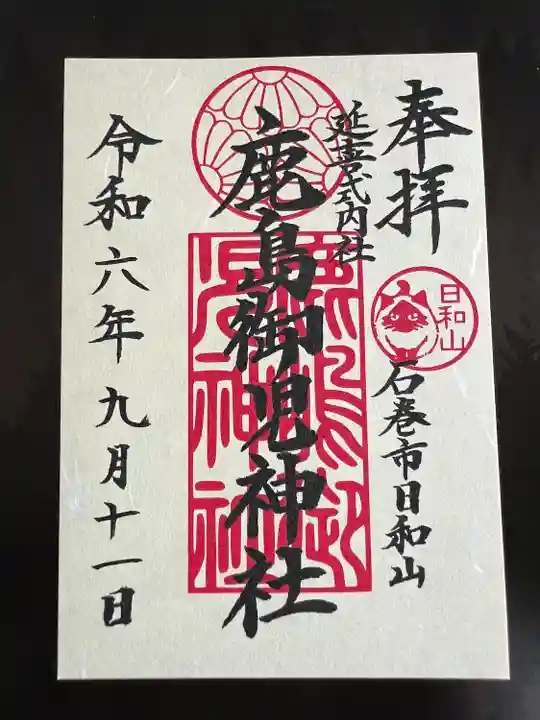 奉拝
日和山
石巻市日和山
延喜式内社
鹿島御児神社
鹿島御児神社
令和六年九月十一日